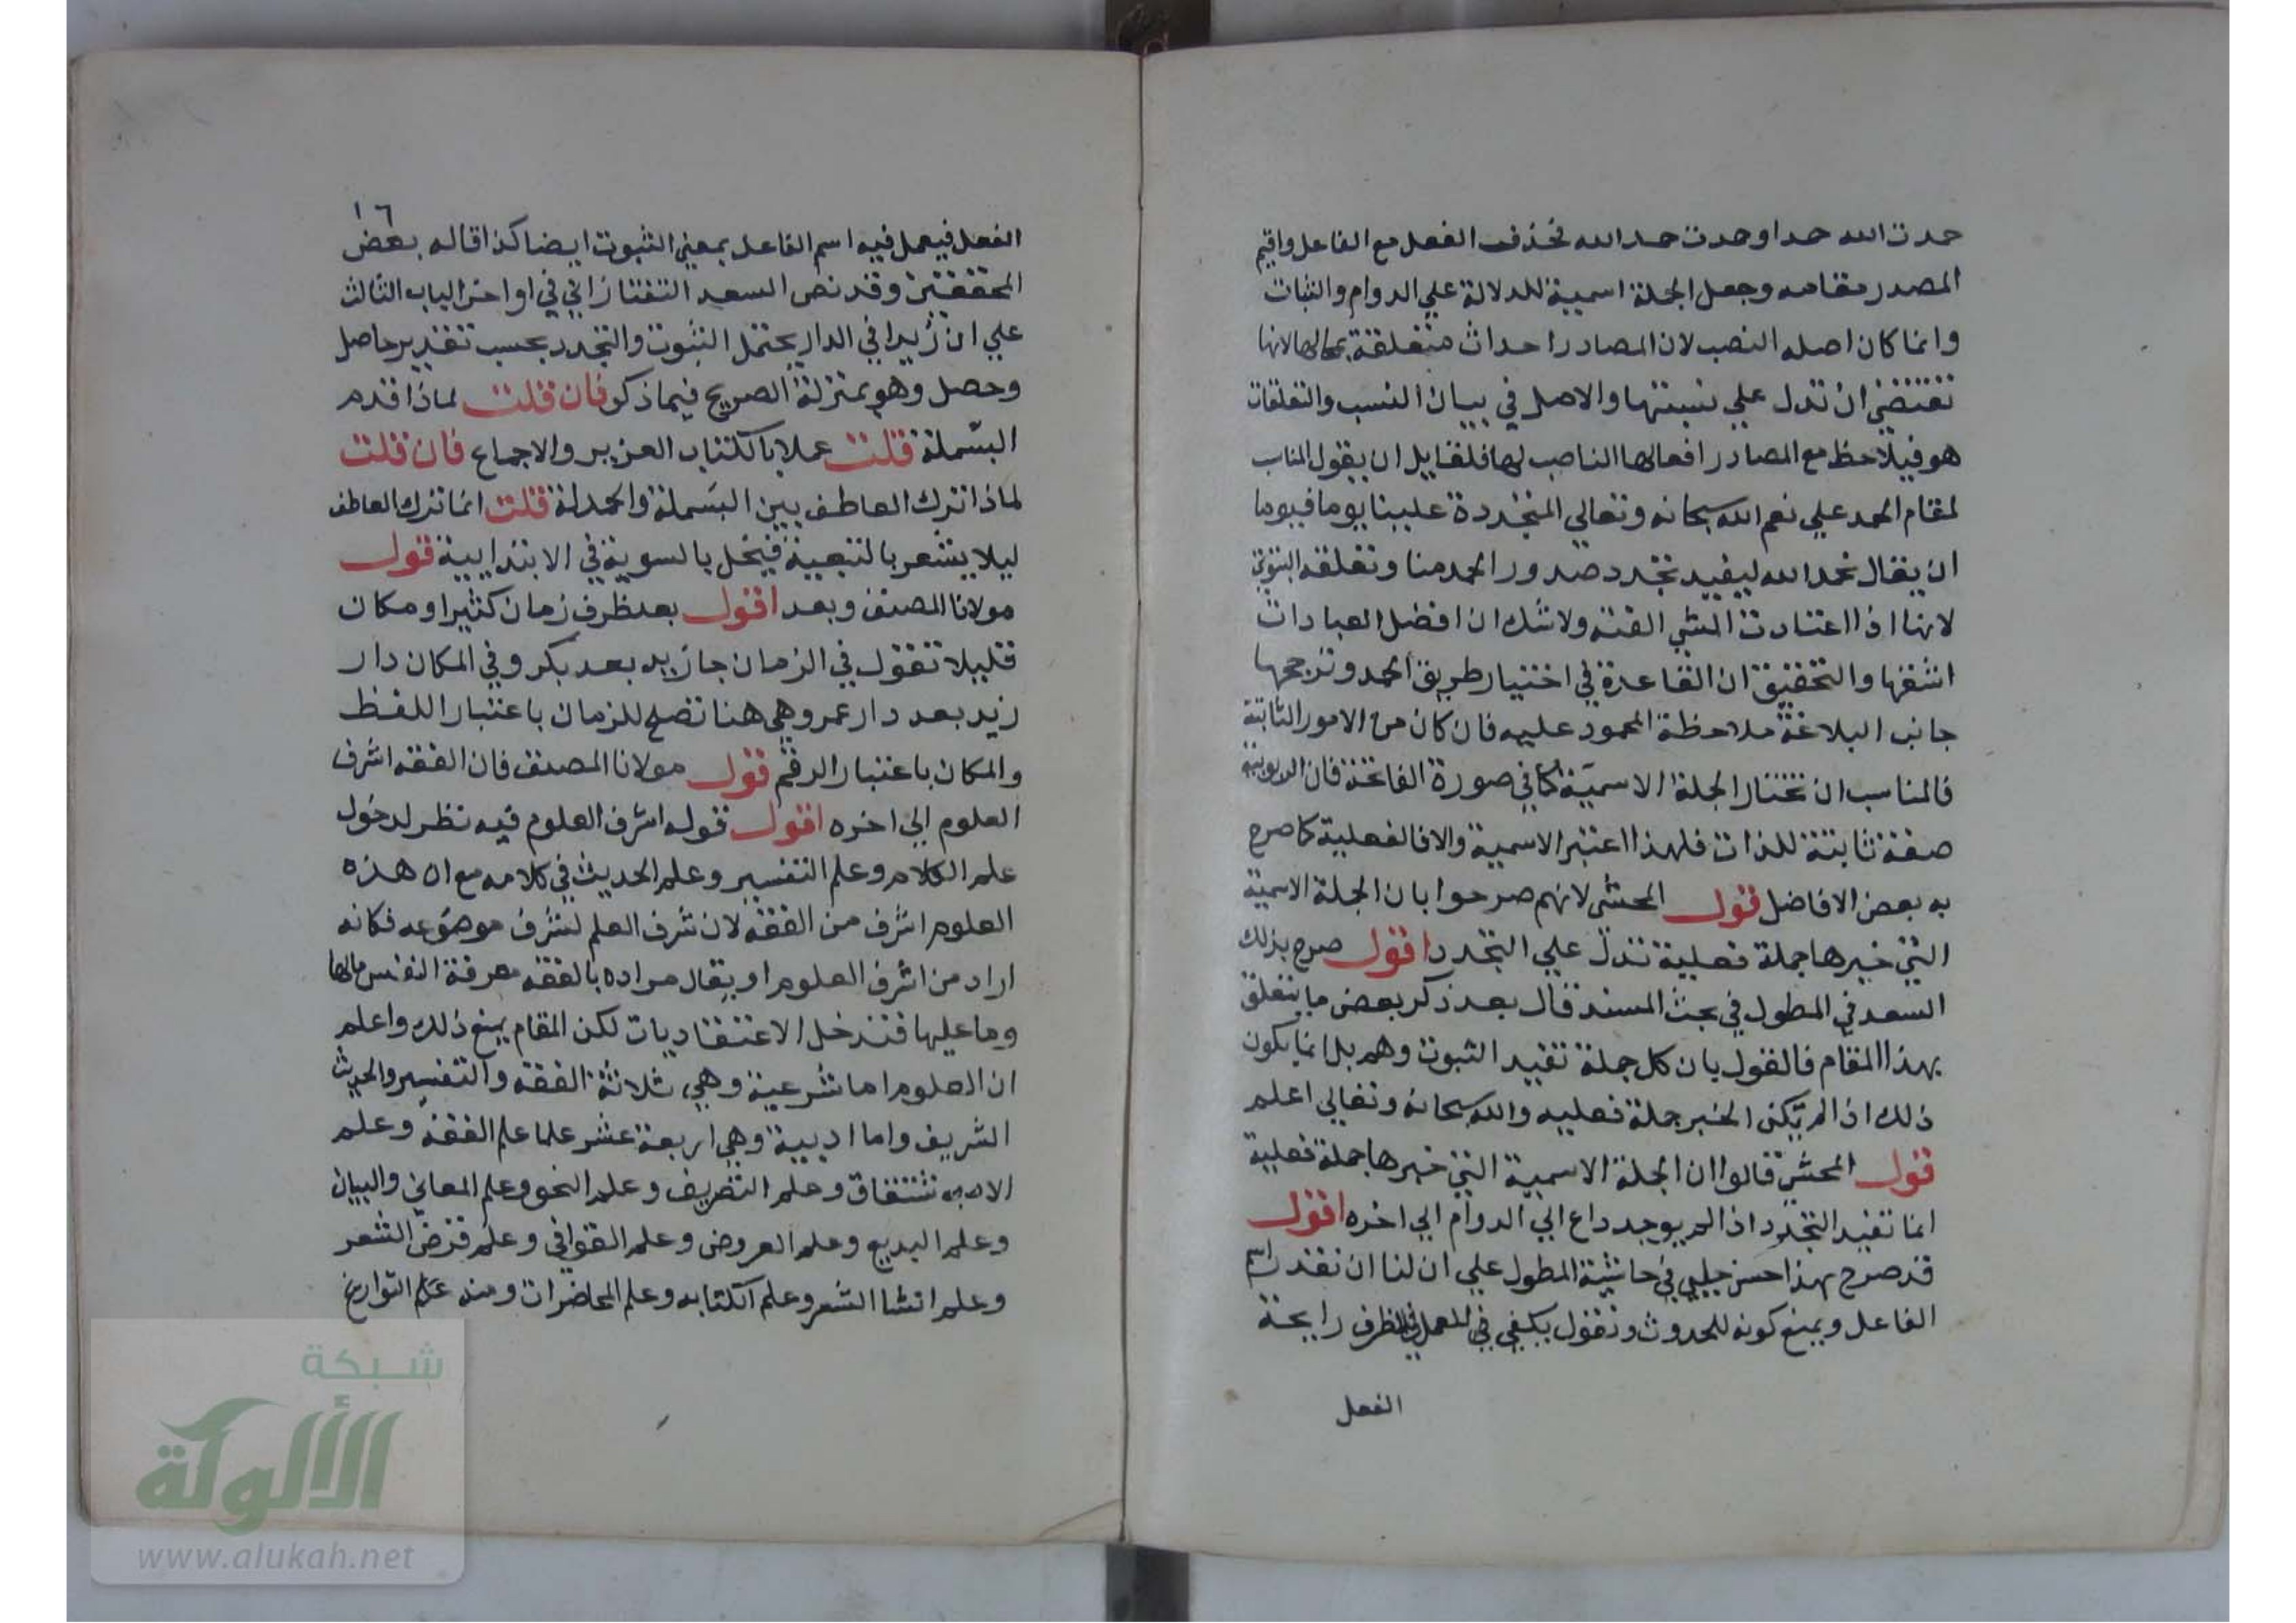 حمدت الله حمدا وحمدت حمد الله فحذف الفعل مع الفاعل واقيم
المصدر مقامه وجعل الجملة اسمية للدلالة علي الدوام والثبات
وانما كان اصله النصب لان المصادر احداث متعلقة بمحالها لانها
تقتضي ان تدل علي نسبتها والاصل في بيان النسب والتعلقات
هو فيلاحظ مع المصادر افعالها الناصب لها فلقايل ان يقول المناسب
لمقام الحمد علي نعم الله سبحانه وتعالي المتجددة علينا يوما فيوما
ان يقال نحمد الله ليفيد تجدد صدور الحمد منا وتعلقه
لانها اذا اعتادت الشي الفته ولا شك ان افضل العبادات
اشقها والتحقيق ان القاعدة في اختيار طريق الحمد وترجحها
جانب البلاغة ملاحظة المحمود عليه فان كان من الامور الثابتة
فالمناسب ان تختار الجملة الاسمية كما في صورة الفاتحة فان الربوبية
صفة ثابتة للذات فلهذا اعتبر الاسمية والا فالفعلية كما صرح
به بعض الافاضل قول المحشي لانهم صرحوا بان الجملة الاسمية
التي خبرها جملة فعلية تدل علي التجدد اقول صرح بذلك
السعد في المطول في بحث المسند قال بعد ذكر بعض ما يتعلق
بهذا المقام فالقول بان كل جملة تفيد الثبوت وهم بل انما يكون
ذلك اذا لم يكن الخبر جملة فعليه والله سبحانه وتعالي اعلم
قول المحشي قالوا ان الجملة الاسمية التي خبرها جملة فعلية
انما تفيد التجدد اذا لم يوجد داع الي الدوام الي اخره اقول
قد صرح بهذا حسن جلبي في حاشية المطول علي ان لنا ان نقدر اسم
الفاعل ويمنع كونه للحدوث ونقول يكفي في العمل في الظرف رايحة
الفعل
١٦
الفعل فيعمل فيه اسم الفاعل بمعني الثبوت ايضا كذا قاله بعض
المحققين وقد نص السعد التفتازاني في اواخر الباب الثالث
علي ان زيدا في الدار يحتمل الثبوت والتجدد بحسب تقدير حاصل
وحصل وهو بمنزلة الصريح فيما ذكر فان قلت لماذا قدم
البسملة قلت عملا بالكتاب العزيز والاجماع فان قلت
لماذا ترك العاطف بين البسملة والحمدلة قلت انما ترك العاطف
ليلا يشعر بالتبعية فيخل بالسوية في الابتدايية قول
مولانا المصنف وبعد اقول بعد ظرف زمان كثيرا ومكان
قليلا تقول في الزمان جا زيد بعد بكر وفي المكان دار
زيد بعد دار عمر وهي هنا تصلح للزمان باعتبار اللفظ
والمكان باعتبار الرقم قول مولانا المصنف فان الفقه اشرف
العلوم الي اخره اقول قوله اشرف العلوم فيه نظر لدخول
علم الكلام وعلم التفسير وعلم الحديث في كلامه مع ان هذه
العلوم اشرف من الفقه لان شرف العلم لشرف موضوعه فكانه
اراد من اشرف العلوم او يقال مراده بالفقه معرفة النفس مالها
وما عليها فتدخل الاعتقاديات لكن المقام يمنع ذلك واعلم
ان العلوم اما شرعية وهي ثلاثة الفقه والتفسير والحديث
الشريف واما ادبية وهي اربعة عشر علما علم الفقه وعلم
الاشتقاق وعلم التصريف وعلم النحو وعلم المعاني والبيان
وعلم البديع وعلم العروض وعلم القوافي وعلم قرض الشعر
وعلم انشا الشعر وعلم الكتابه وعلم المحاضرات ومنه علم التواريخ
شبكة
الألوكة
www.alukah.net